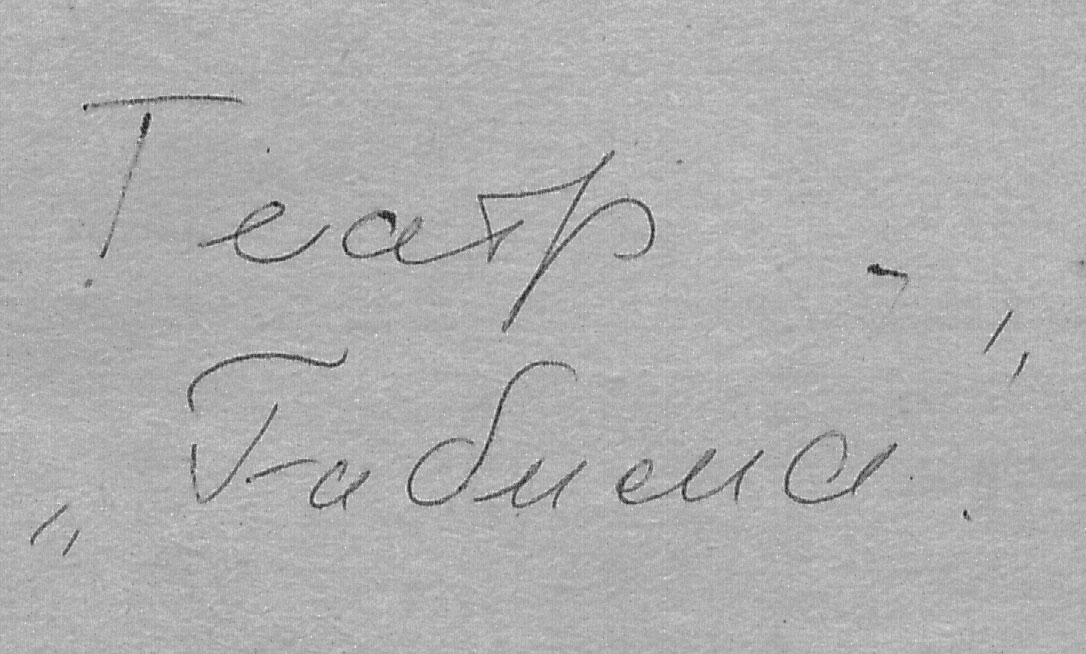 Театр -
„Габима".